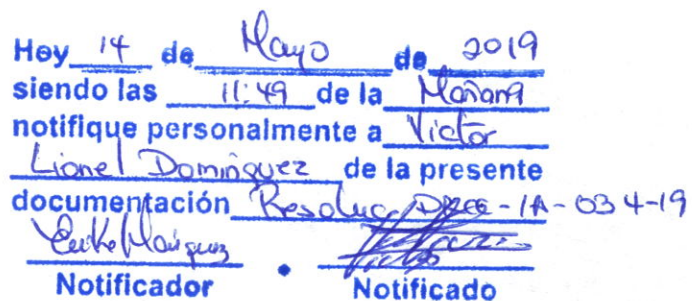 Hoy 14 de Mayo de 2019
siendo las 11:49 de la Mañana
notifique personalmente a Victor
Lionel Dominguez de la presente
documentación Resoluc. -IA-034-19
Notificador Notificado